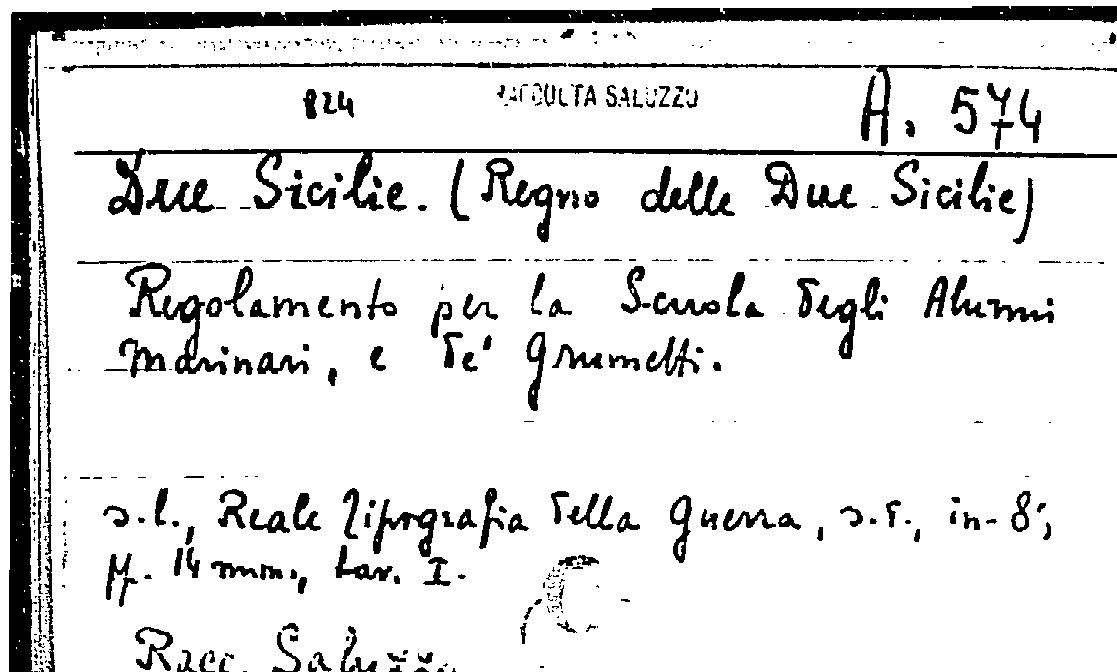 824 RACCOLTA SALUZZO A. 574
Due Sicilie. (Regno delle Due Sicilie)
Regolamento per la Scuola degli Alunni
Marinari, e de' Grumetti.
s.l., Reale Tipografia della Guerra, s.d., in-8°,
pp. 14 num., tav. I.
Racc. Saluzzo